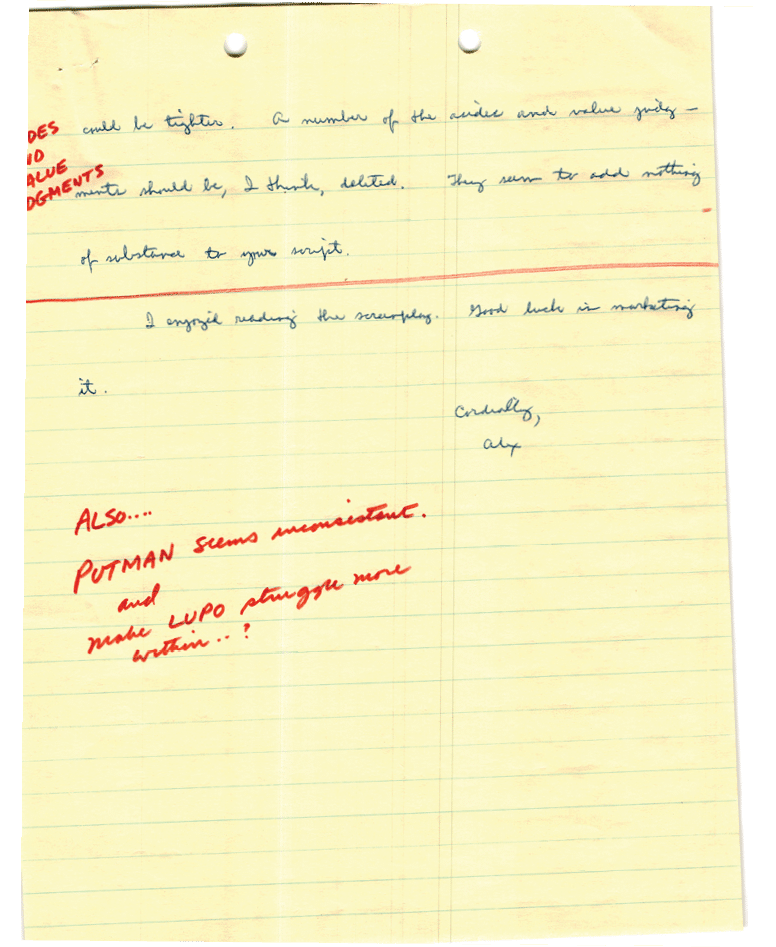 could be tighter. A number of the asides and value judg-
DES
ND
ALUE
DGMENTS
ments should be, I think, deleted. They seem to add nothing
of substance to your script.
I enjoyed reading the screenplay. Good luck in marketing
it.
Cordially,
Alex
ALSO....
PUTMAN seems inconsistant.
and
make LUPO struggle more
within..?